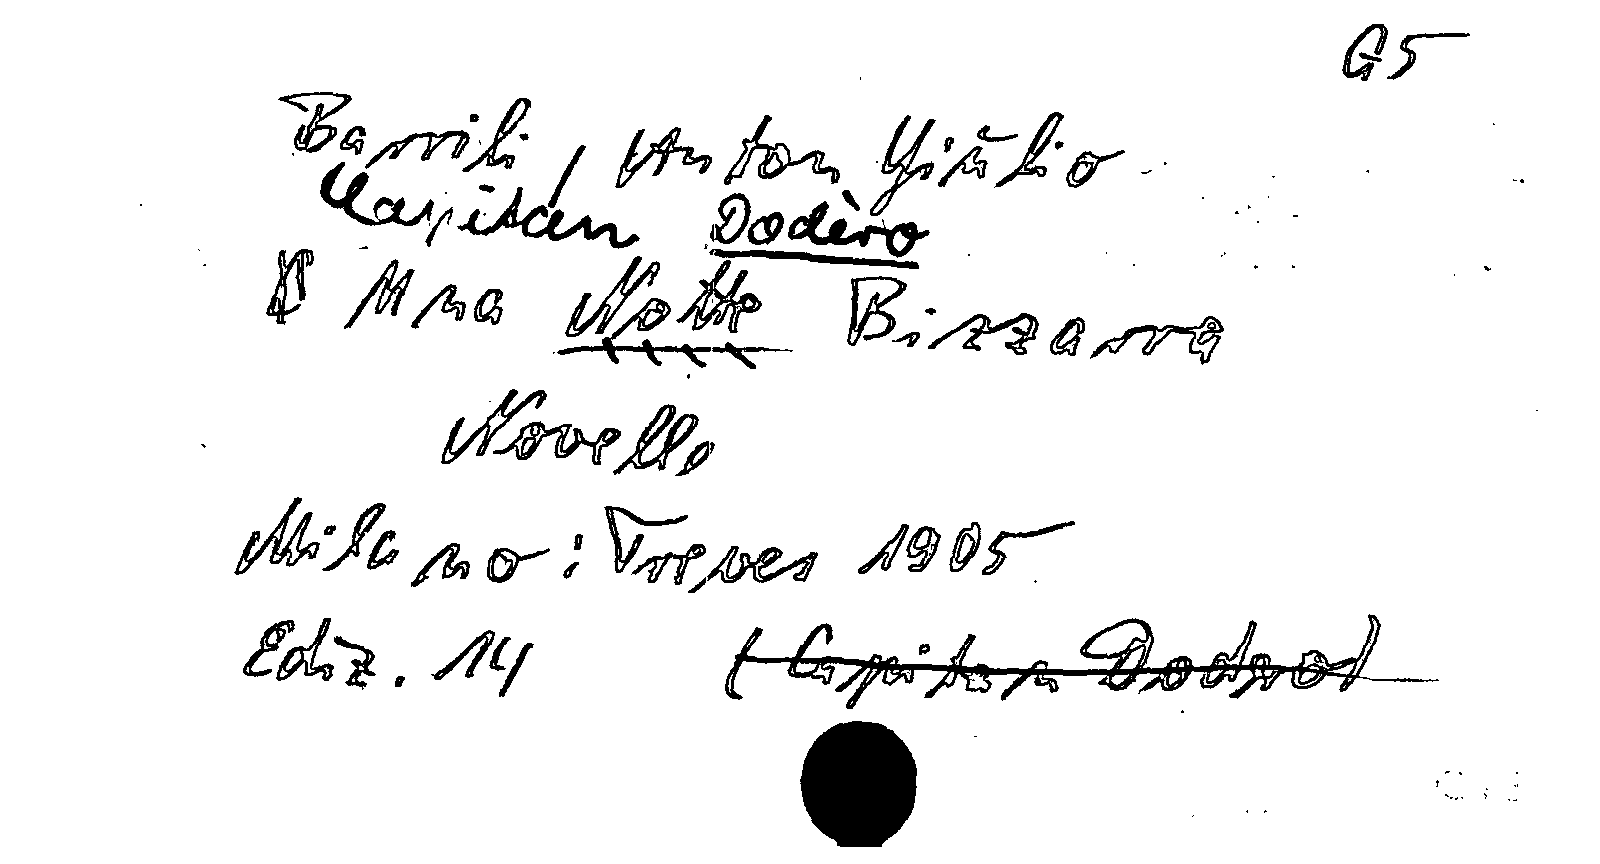 G5
Barrili, Anton Giŭlio
Capitan Dodèro
Una Notte Bizzarra
Novelle
Milano: Treves 1905
Ediz. 14 (Capitan Dodero)